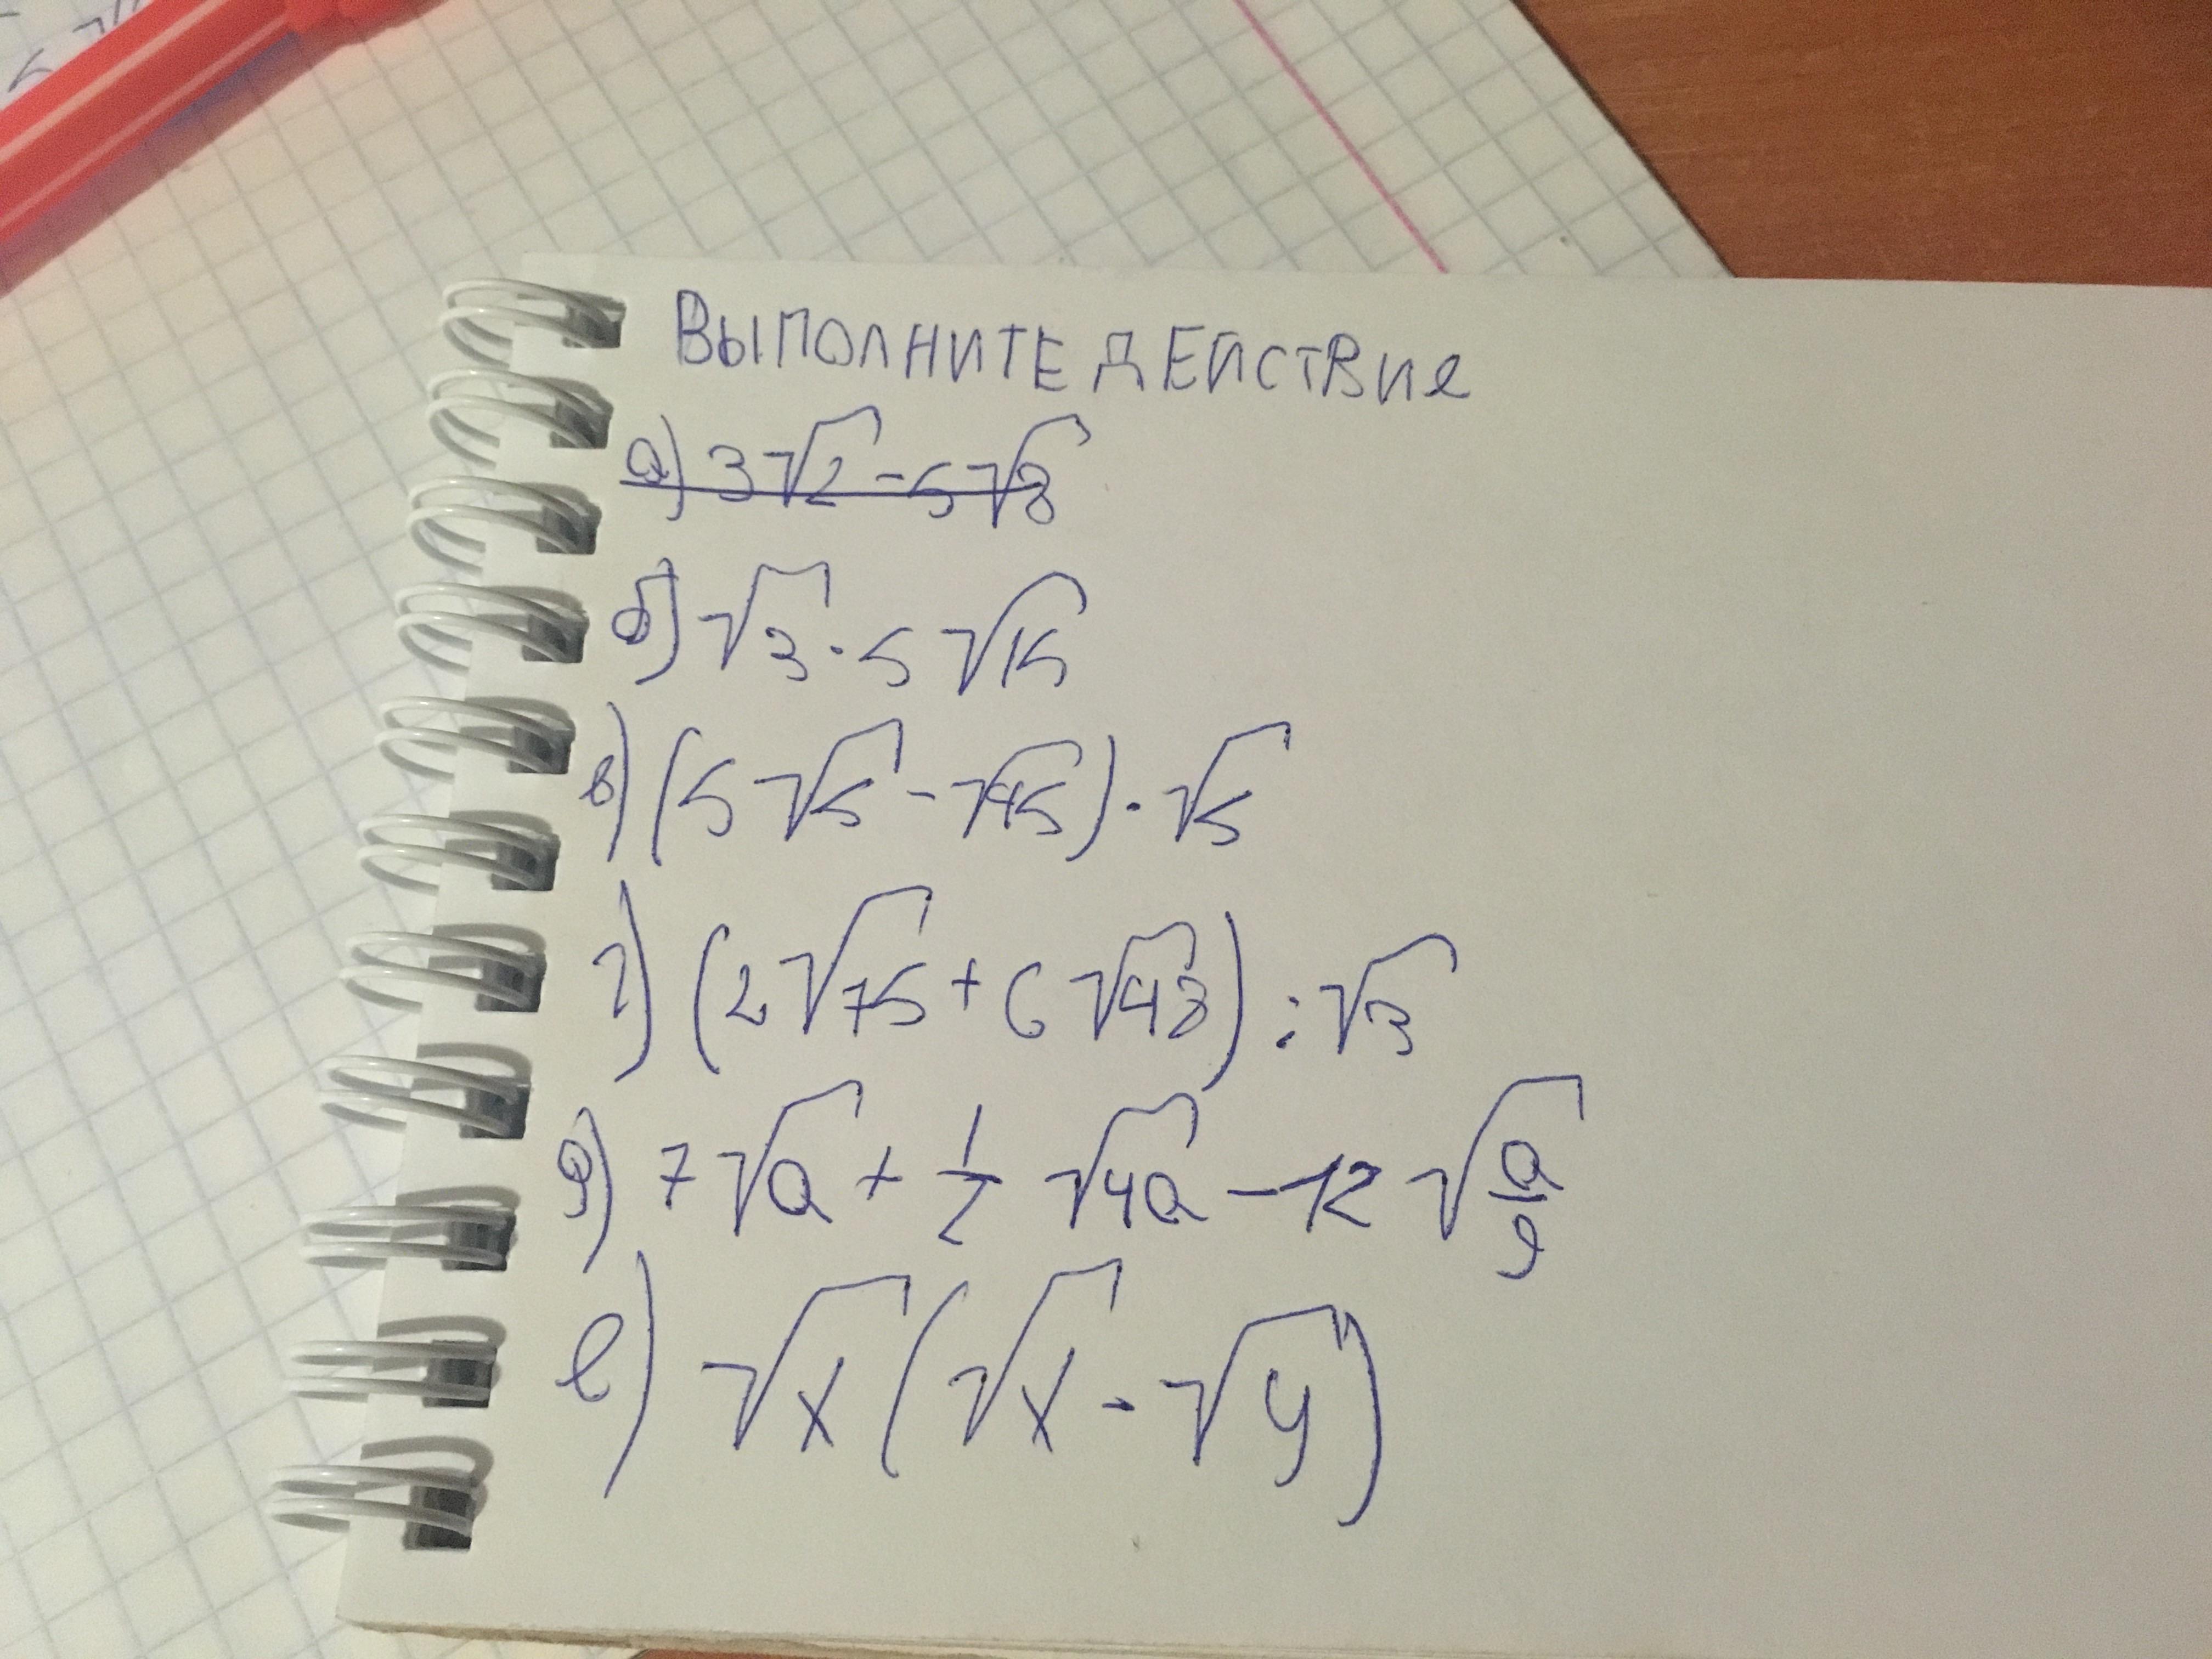 ВЫПОЛНИТЕ ДЕЙСТВИЕ
а) 3√2 - 5√8
б) √3 · 5√15
в) (5√5 - √45) · √5
г) (2√75 + 6√48) : √3
д) 7√a + 1/2 √4a - 12√a/9
е) √x (√x - √y)